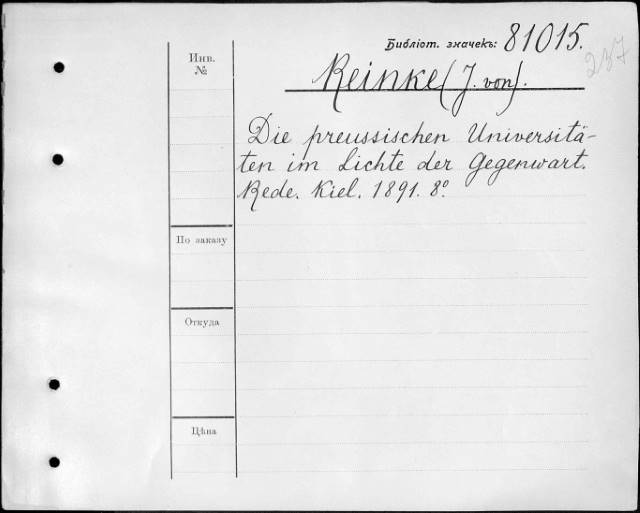 Библіот. значекъ: 81015.
237
Инв.
№
Reinke (J. von).
Die preussischen Universitä-
ten im Lichte der Gegenwart.
Rede. Kiel. 1891. 8º.
По заказу
Откуда
Цѣна